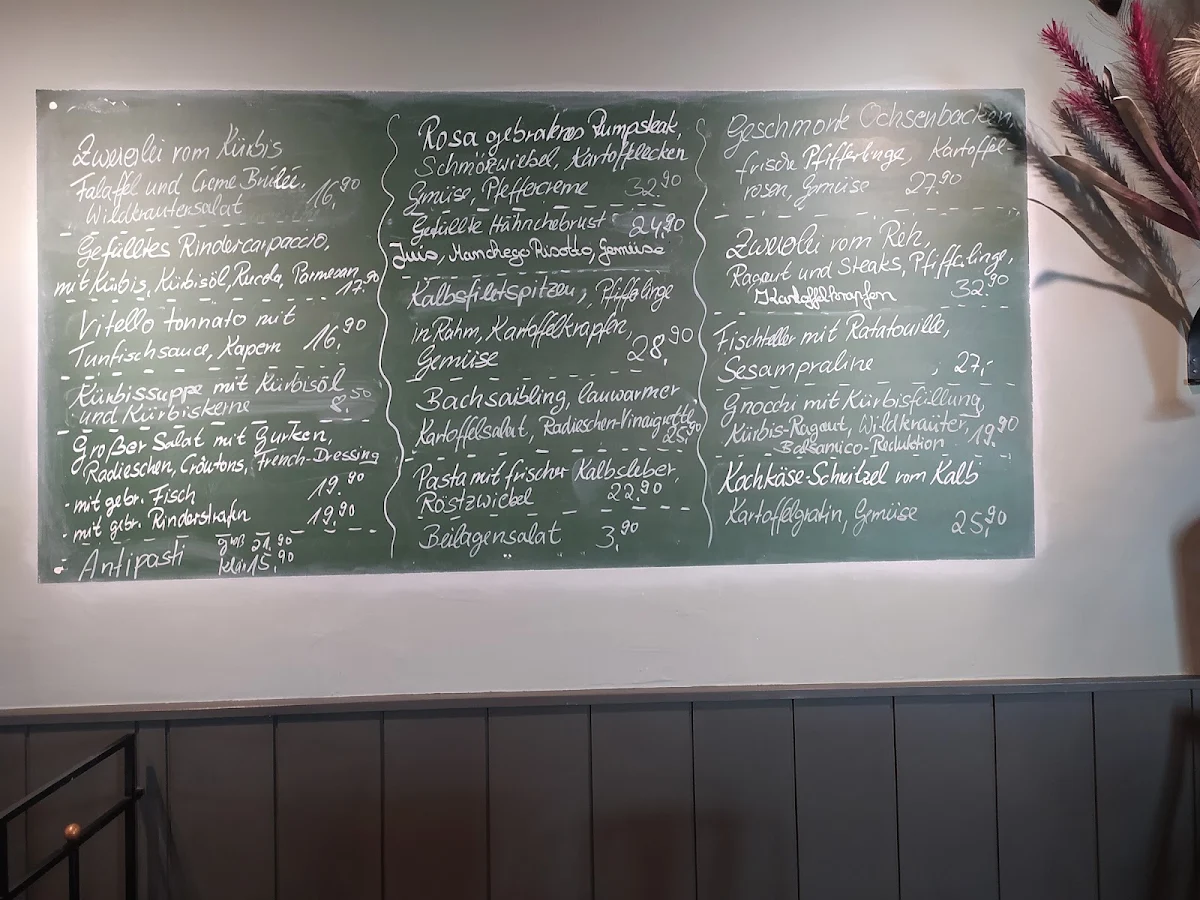 Zweierlei vom Kürbis
Falaffel und Creme Brûlée,
Wildkräutersalat 16,90
Gefülltes Rindercarpaccio,
mit Kürbis, Kürbisöl, Rucola, Parmesan 17.90
Vitello tonnato mit
Tunfischsauce, Kapern 16,90
Kürbissuppe mit Kürbisöl
und Kürbiskerne 8,50
Großer Salat mit Gurken,
Radieschen, Croûtons, French-Dressing
- mit gebr. Fisch 19.90
- mit gebr. Rinderstreifen 19,90
Antipasti groß 21.90
klein 15,90
Rosa gebratenes Rumpsteak,
Schmorzwiebel, Kartoffelecken
Gemüse, Pfeffercreme 32,90
Gefüllte Hähnchebrust 24,90
Jus, Manchego Risotto, Gemüse
Kalbsfiletspitzen, Pfifferlinge
in Rahm, Kartoffelkrapfen,
Gemüse 28,90
Bachsaibling, lauwarmer
Kartoffelsalat, Radieschen-Vinaigrette
25,90
Pasta mit frischer Kalbsleber,
Röstzwiebel 22,90
Beilagensalat 3,90
Geschmorte Ochsenbacken,
frische Pfifferlinge, Kartoffel-
rosen, Gemüse 27,90
Zweierlei vom Reh,
Ragout und Steaks, Pfifferlinge,
Kartoffelkrapfen 32,90
Fischteller mit Ratatouille,
Sesampraline 27,-
Gnocchi mit Kürbisfüllung,
Kürbis-Ragout, Wildkräuter, 19,90
Balsamico-Reduktion
Kochkäse-Schnitzel vom Kalb
Kartoffelgratin, Gemüse 25,90